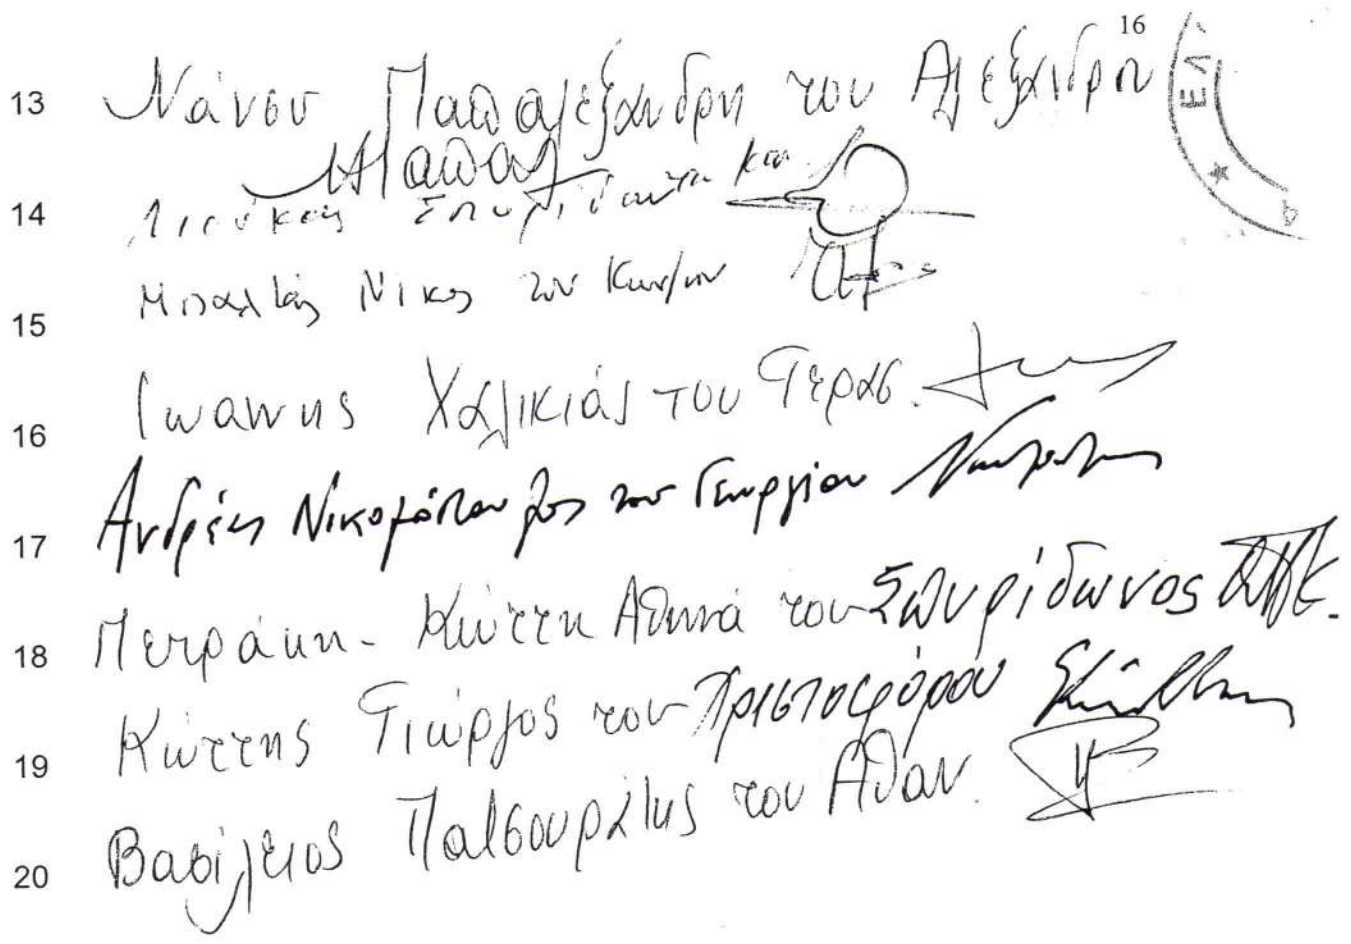 16
ΕΛΛ
13 Νάνου Παπαλεξάνδρη του Αλεξάνδρου
14 Λιούκας Σπυρίδων του Κων.
15 Μπαλτάς Νίκος του Κων/νου
16 Ιωάννης Χαλικιάς του Γερασ.
17 Ανδρέας Νικολόπουλος του Γεωργίου
18 Πετράκη - Κώττη Αθηνά του Σπυρίδωνος
19 Κώττης Γιώργος του Χριστοφόρου
20 Βασίλειος Πατσουράτης του Αθαν.